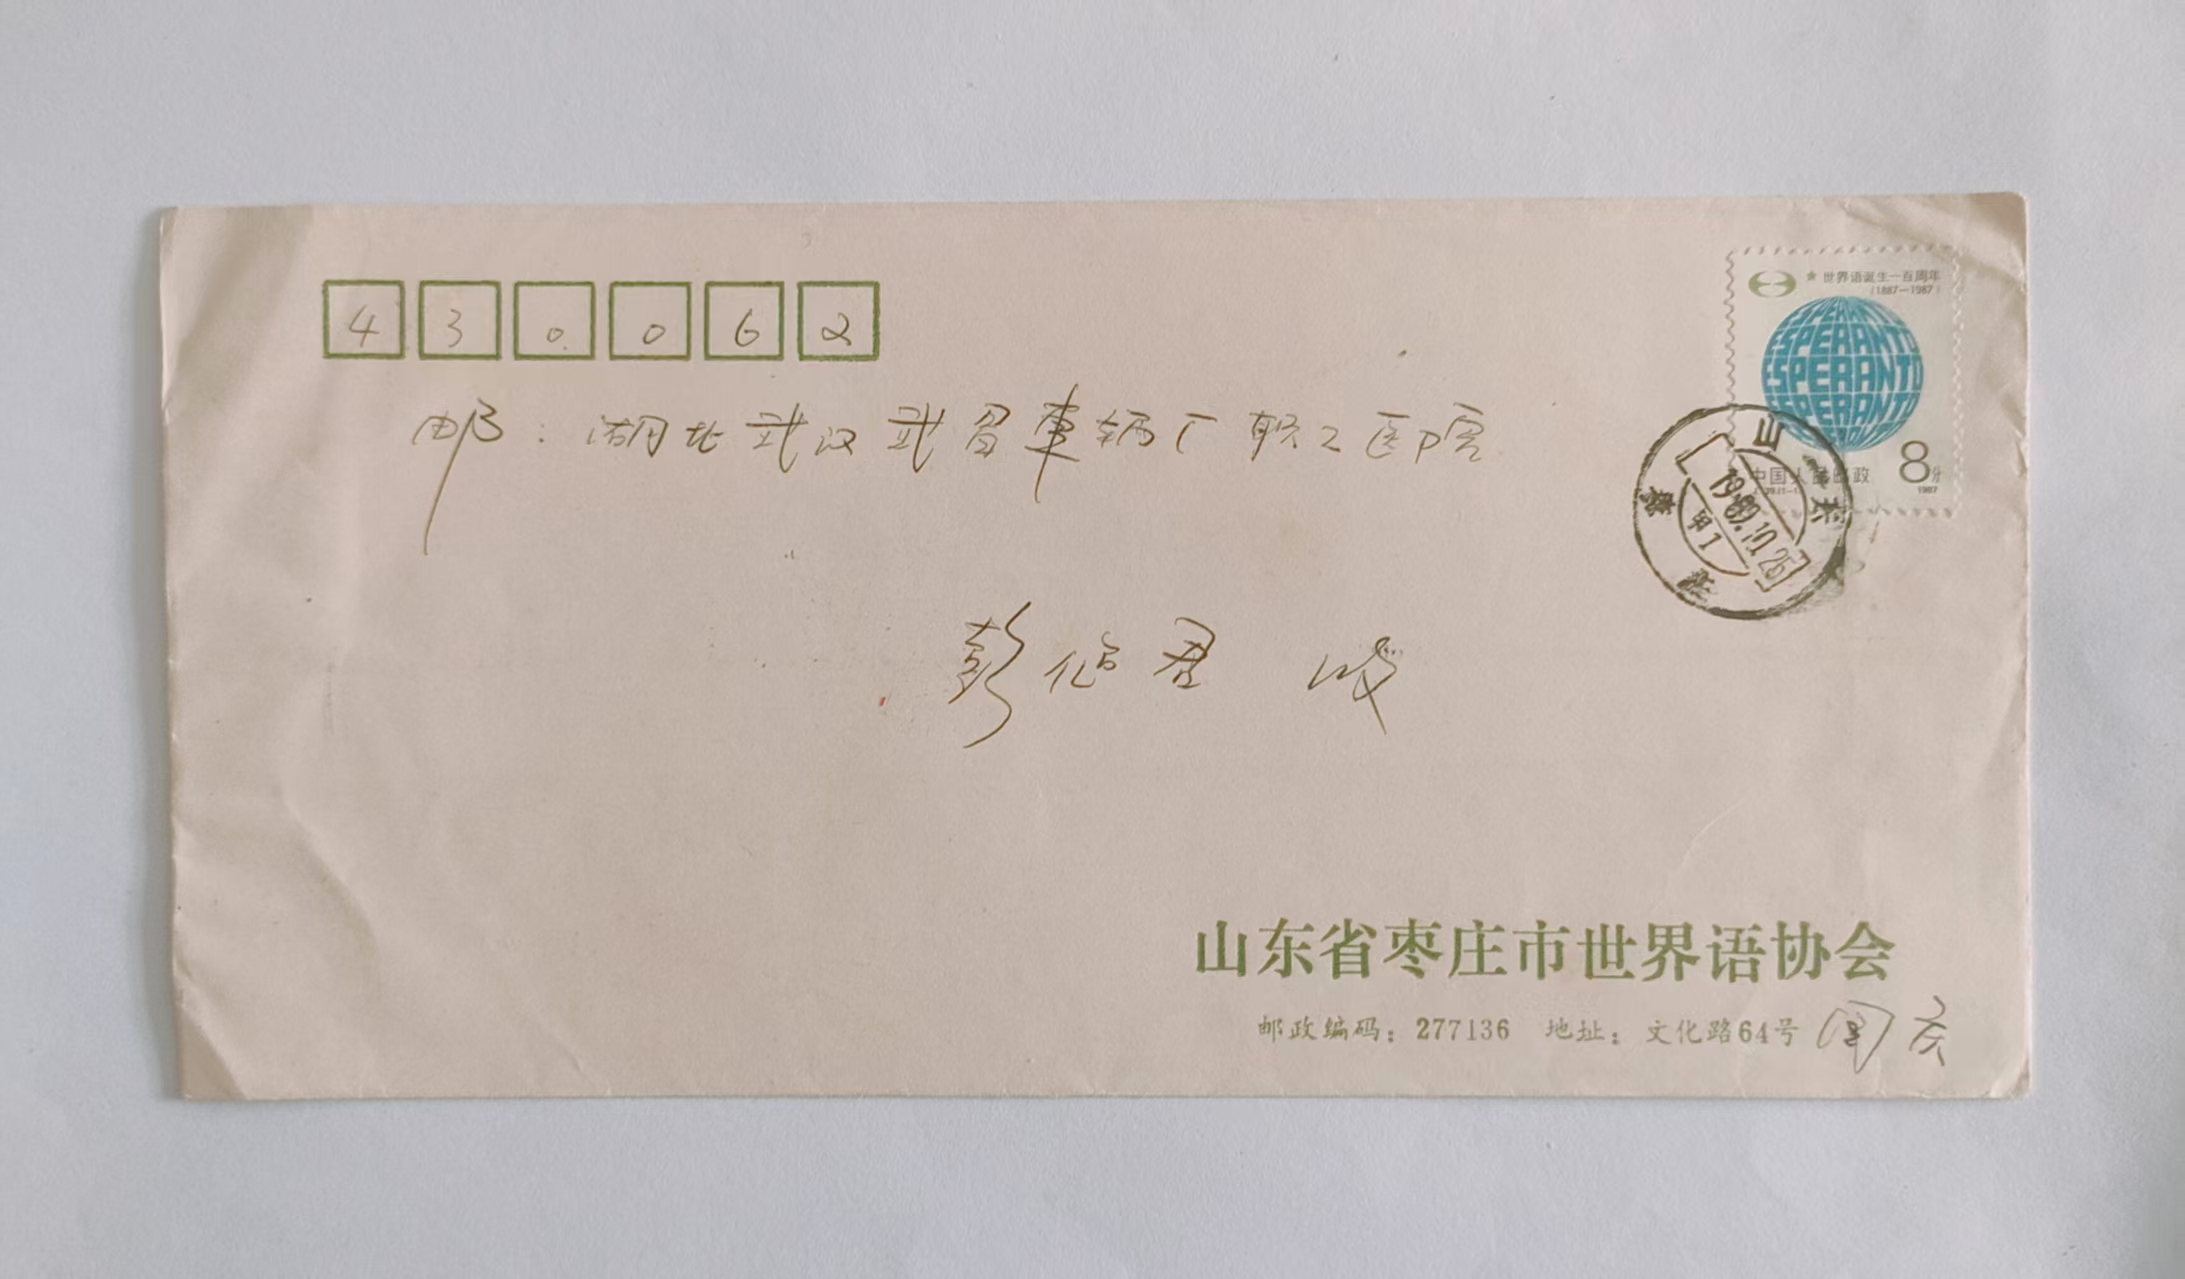 430062
★世界语诞生一百周年
(1887—1987)
ESPERANTO
ESPERANTO
ESPERANTO
8分
中国人民邮政
1987
邮：湖北武汉武昌车辆厂职工医院
山东
枣庄
1989.10.25
甲1
彭 君 收
山东省枣庄市世界语协会
邮政编码：277136 地址：文化路64号